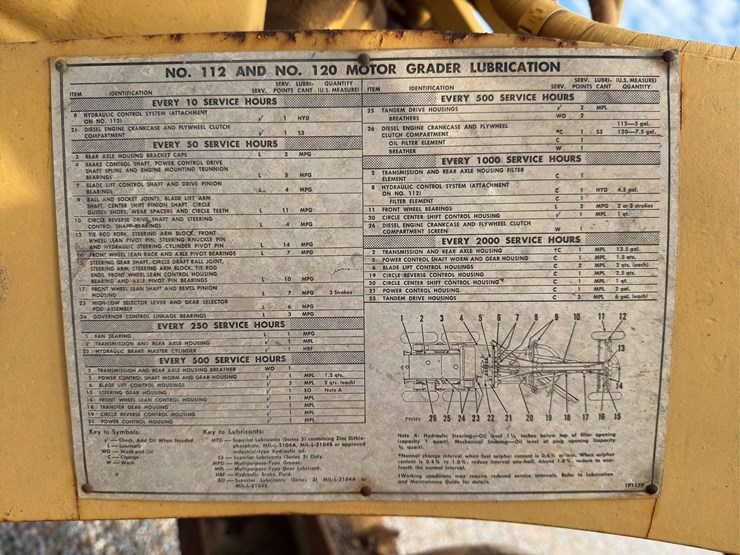 NO. 112 AND NO. 120 MOTOR GRADER LUBRICATION
ITEM IDENTIFICATION SERV. SERV. POINTS LUBRI- CANT QUANTITY (U.S. MEASURE)
EVERY 10 SERVICE HOURS
8 HYDRAULIC CONTROL SYSTEM (ATTACHMENT
ON NO. 112) √ 1 HYD
DIESEL ENGINE CRANKCASE AND FLYWHEEL CLUTCH
COMPARTMENT √ 1 S3
EVERY 50 SERVICE HOURS
3 REAR AXLE HOUSING BRACKET CAPS L 2 MPG
4 BRAKE CONTROL SHAFT, POWER CONTROL DRIVE
SHAFT SPLINE AND ENGINE MOUNTING TRUNNION
BEARINGS L 5 MPG
7 BLADE LIFT CONTROL SHAFT AND DRIVE PINION
BEARINGS L 4 MPG
9 BALL AND SOCKET JOINTS, BLADE LIFT ARM
SHAFT, CENTER SHIFT PINION SHAFT, CIRCLE
GUIDES SHOES, WEAR SPACERS AND CIRCLE TEETH L 11 MPG
10 CIRCLE REVERSE DRIVE SHAFT AND STEERING
CONTROL SHAFT BEARINGS L 4 MPG
13 TIE ROD FORK, STEERING ARM BLOCK, FRONT
WHEEL LEAN PIVOT PIN, STEERING KNUCKLE PIN
AND HYDRAULIC STEERING CYLINDER PIVOT PIN L 14 MPG
FRONT WHEEL LEAN RACK AND AXLE PIVOT BEARINGS L 7 MPG
STEERING GEAR SHAFT, CIRCLE DRAFT BALL JOINT,
STEERING ARM, STEERING ARM BLOCK, TIE ROD
ENDS, FRONT WHEEL LEAN CONTROL HOUSING
BEARING AND AXLE PIVOT PIN BEARINGS L 10 MPG
17 FRONT WHEEL LEAN SHAFT AND BEVEL PINION
HOUSING L 7 MPG 3 Strokes
23 HIGH-LOW SELECTOR LEVER AND GEAR SELECTOR
ROD ASSEMBLY L 6 MPG
24 GOVERNOR CONTROL LINKAGE BEARINGS L 3 MPG
EVERY 250 SERVICE HOURS
1 FAN BEARING L 1 MPG
2 TRANSMISSION AND REAR AXLE HOUSING √ 1 MPL
22 HYDRAULIC BRAKE MASTER CYLINDER √ 1 HBF
EVERY 500 SERVICE HOURS
2 TRANSMISSION AND REAR AXLE HOUSING BREATHER WO 1
5 POWER CONTROL SHAFT WORM AND GEAR HOUSING √ 1 MPL 1.5 qts.
6 BLADE LIFT CONTROL HOUSINGS √ 2 MPL 2 qts. (each)
15 STEERING GEAR HOUSING √ 1 EO Note A
16 FRONT WHEEL LEAN CONTROL HOUSING √ 1 MPL
18 TRANSFER GEAR HOUSING √ 1 MPL
19 CIRCLE REVERSE CONTROL HOUSING √ 1 MPL
21 POWER CONTROL HOUSING √ 1 MPL
Key to Symbols:
√ — Check, Add Oil When Needed
L — Lubricate
WO — Wash and Oil
C — Change
W — Wash
Key to Lubricants:
HYD — Superior Lubricants (Series 3) containing Zinc Dithio-
phosphate, MIL-L-2104A, MIL-L-2104B or approved
industrial-type hydraulic oil.
S3 — Superior Lubricants (Series 3) Only.
MPG — Multipurpose-Type Grease.
MPL — Multipurpose-Type Gear Lubricant.
HBF — Hydraulic Brake Fluid.
EO — Superior Lubricants (Series 3), MIL-L-2104A or
MIL-L-2104B.
ITEM IDENTIFICATION SERV. SERV. POINTS LUBRI- CANT (U.S. MEASURE) QUANTITY
EVERY 500 SERVICE HOURS
25 TANDEM DRIVE HOUSINGS √ 2 MPL
BREATHERS WO 2
26 DIESEL ENGINE CRANKCASE AND FLYWHEEL 112—5 gal.
CLUTCH COMPARTMENT *C 1 S3 120—7.5 gal.
OIL FILTER ELEMENT C 1
BREATHER W 1
EVERY 1000 SERVICE HOURS
2 TRANSMISSION AND REAR AXLE HOUSING FILTER
ELEMENT C 1
8 HYDRAULIC CONTROL SYSTEM (ATTACHMENT
ON NO. 112) C 1 HYD 4.5 gal.
FILTER ELEMENT C 1
11 FRONT WHEEL BEARINGS L 2 MPG 2 or 3 strokes
20 CIRCLE CENTER SHIFT CONTROL HOUSING √ 1 MPL 1 qt.
26 DIESEL ENGINE CRANKCASE AND FLYWHEEL CLUTCH
COMPARTMENT SCREEN W 1
EVERY 2000 SERVICE HOURS
2 TRANSMISSION AND REAR AXLE HOUSING †C 1 MPL 13.5 gal.
5 POWER CONTROL SHAFT WORM AND GEAR HOUSING C 1 MPL 1.5 qts.
6 BLADE LIFT CONTROL HOUSINGS C 2 MPL 2 qts. (each)
19 CIRCLE REVERSE CONTROL HOUSING C 1 MPL 2.5 qts.
20 CIRCLE CENTER SHIFT CONTROL HOUSING C 1 MPL 1 qt.
21 POWER CONTROL HOUSING C 1 MPL 2 gal.
25 TANDEM DRIVE HOUSINGS C 2 MPL 6 gal. (each)
1 2 3 4 5 6 7 8 9 10 11 12
13
14
26 25 24 23 22 21 20 19 18 17 16 15
Note A: Hydraulic Steering—Oil level 1½ inches below top of filler opening
(capacity 1 quart). Mechanical Steering—Oil level at plug opening (capacity
¾ quart).
*Normal change interval when fuel sulphur content is 0.4% or less. When sulphur
content is 0.4% to 1.0%, reduce interval one-half. Above 1.0%, reduce to one-
fourth the normal interval.
†Working conditions may require reduced service intervals. Refer to Lubrication
and Maintenance Guide for details.